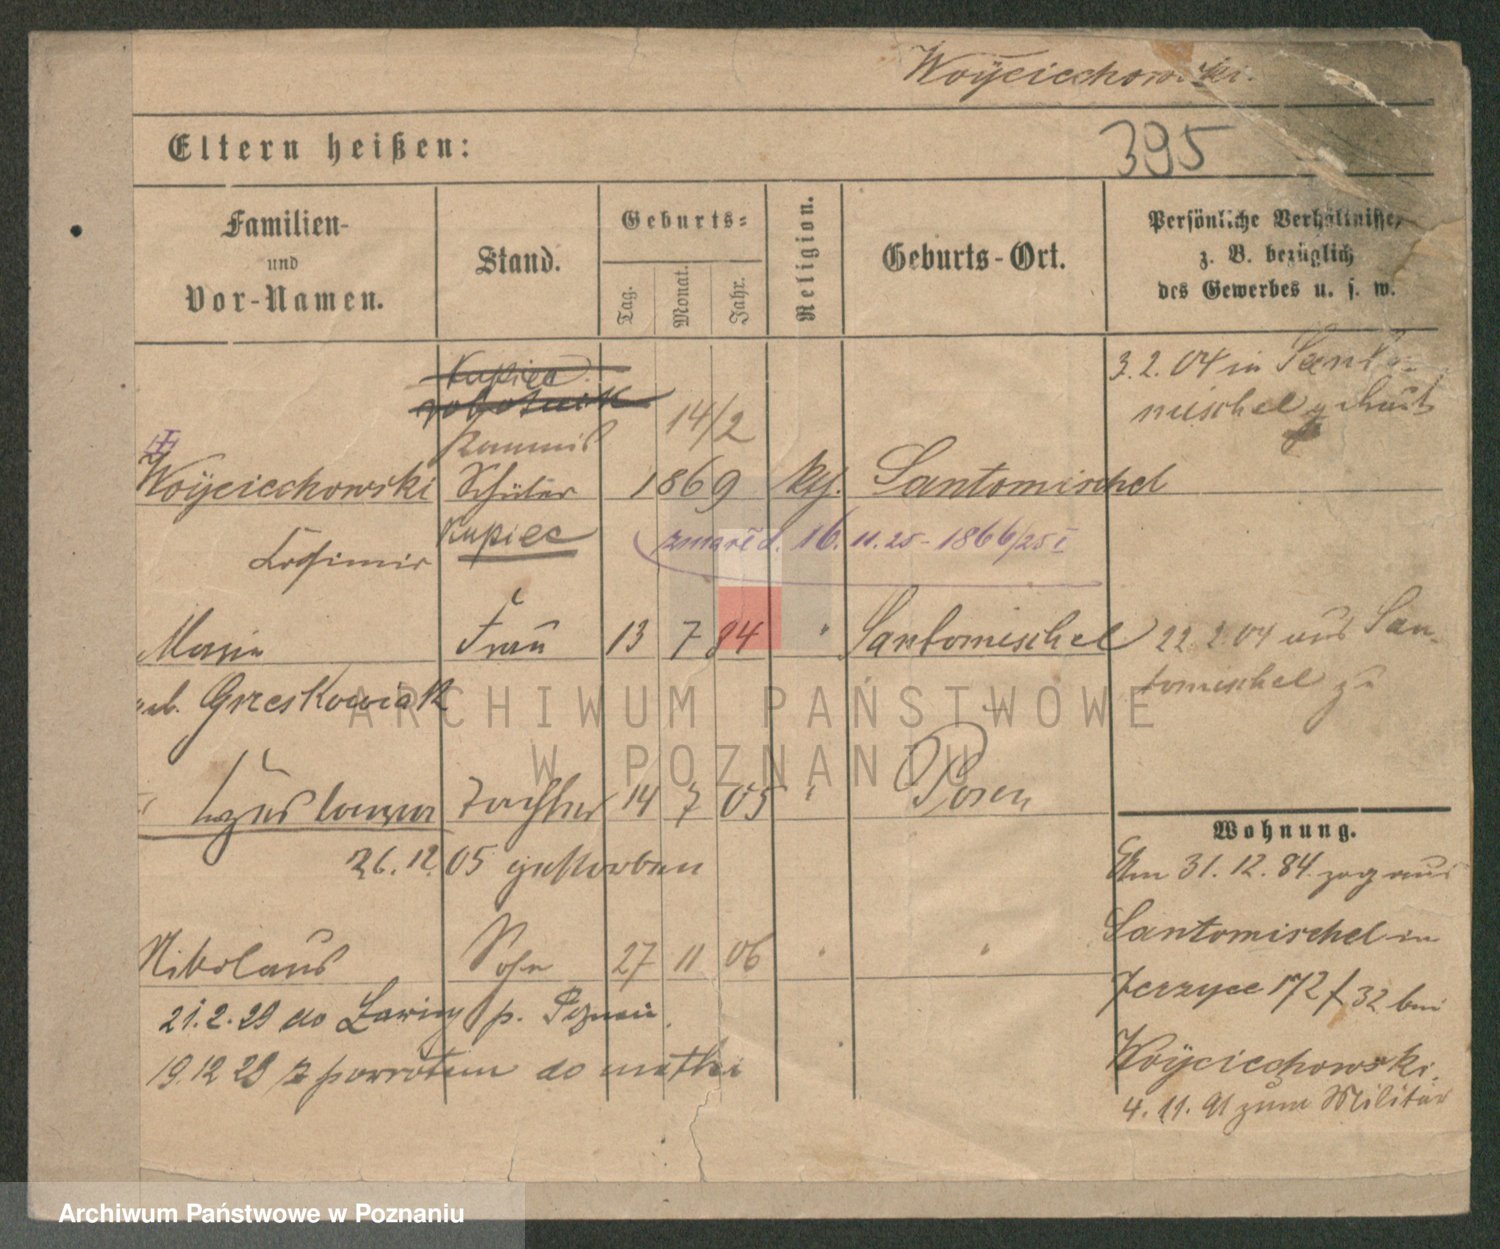 Woÿciechowski.
395
Eltern heißen:
Familien-
und
Vor-Namen.
Stand.
Geburts-
Tag.
Monat.
Jahr.
Religion.
Geburts-Ort.
Persönliche Verhältnisse,
z. B. bezüglich
des Gewerbes u. s. w.
Kupiec
robotnik
3.2.04 in Santo-
mischel
14/2
Kommis
Woÿciechowski Schüler 1869 kth. Santomischel
Kupiec
zmarł d. 16.11.25 - 1866/25 I
Kasimir
Maria Frau 13 7 84 " Santomischel
22.2.04 aus San-
tomischel zu
geb. Grzeskowiak
ARCHIWUM PAŃSTWOWE
W POZNANIU
Tochter 14 7 05 " Posen
26.12.05 gestorben
Nikolaus Sohn 27 11 06 " "
21.2.29 do Ławicy p. Poznań.
19.12 29 z powrotem do matki
Wohnung.
Am 31.12.84. zog aus
Santomischel in
Jerzyce 172/32 bei
Woÿciechowski.
4.11.91 zum Militär
Archiwum Państwowe w Poznaniu